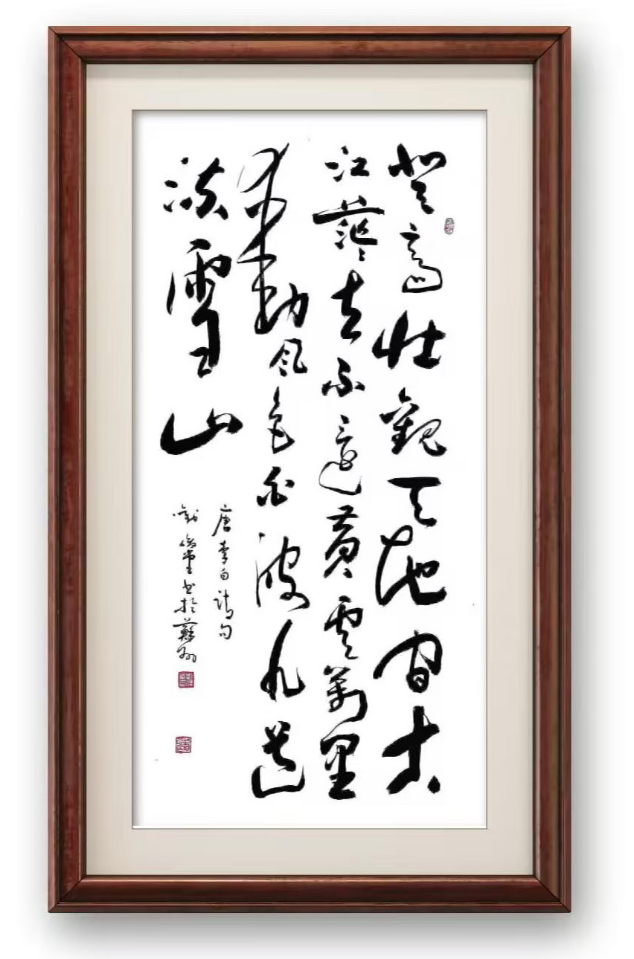 登高壮觀天地間大
江茫々去不還黃雲萬里
動風色白波九道
流雪山
唐李白詩句
書於蘇州